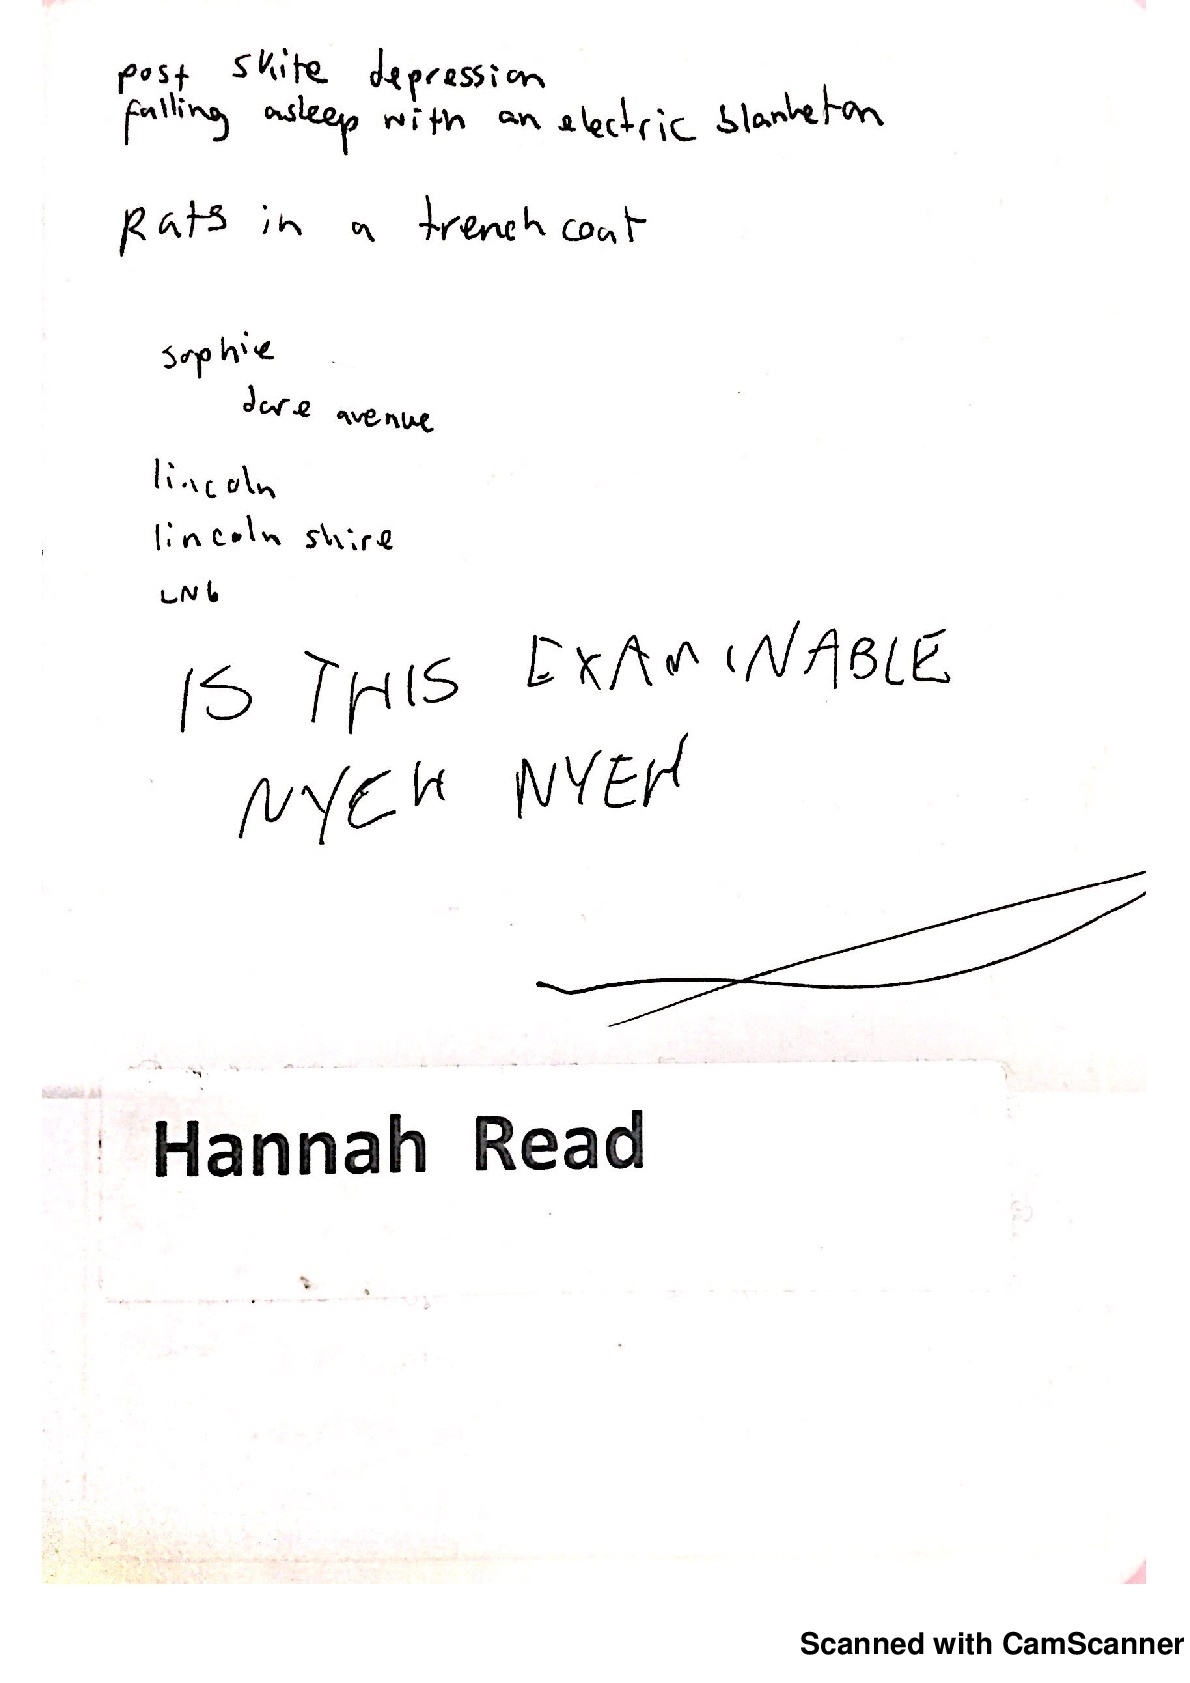 post skite depression
falling asleep with an electric blanket on
Rats in a trench coat
sophie
dare avenue
lincoln
lincoln shire
LN6
IS THIS EXAMINABLE
NYEH NYEH
Hannah Read
Scanned with CamScanner